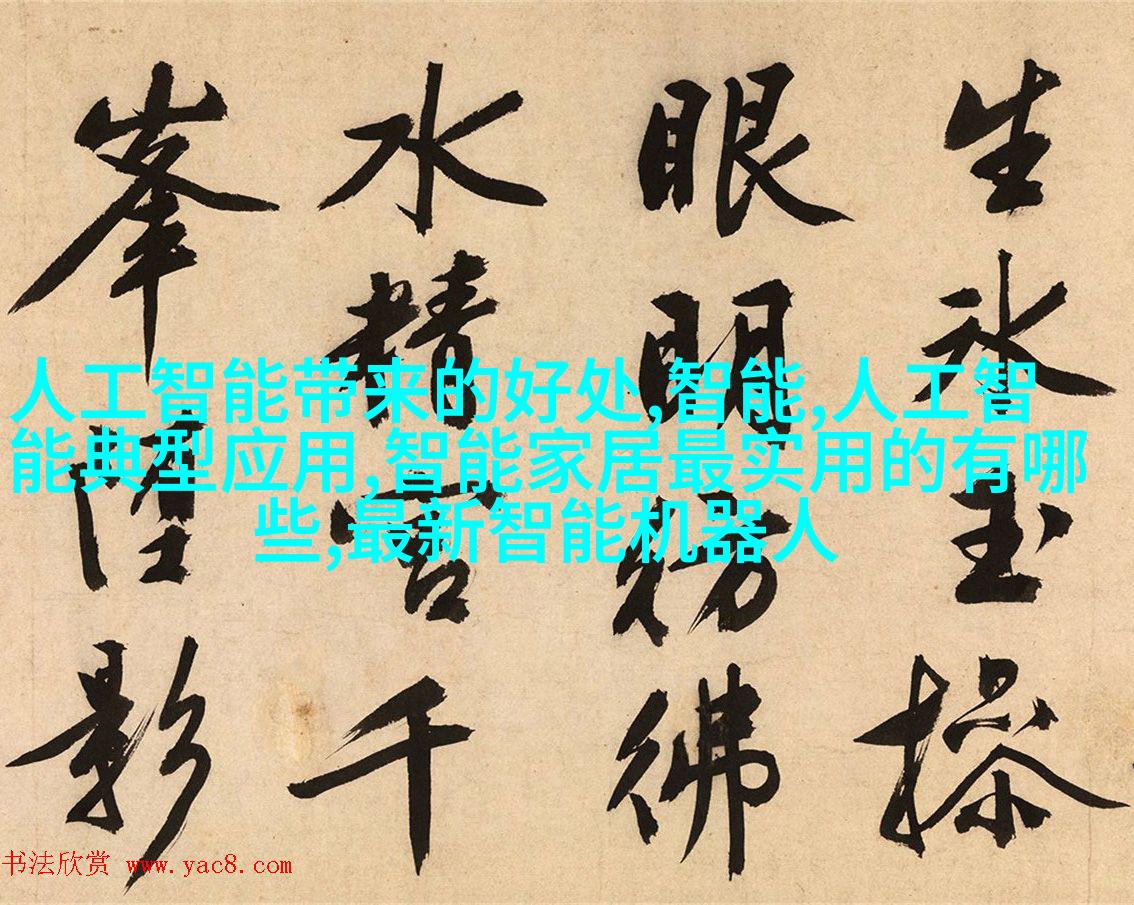 生氷玉操
眼明彷彿
水精宮千
峯影
人工智能带来的好处,智能,人工智
能典型应用,智能家居最实用的有哪
些,最新智能机器人
书法欣赏 www.yac8.com